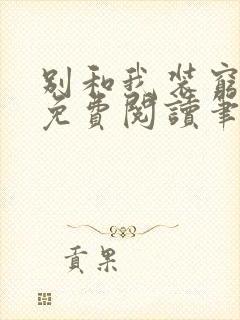 别和我装穷
免费阅读笔
贡果